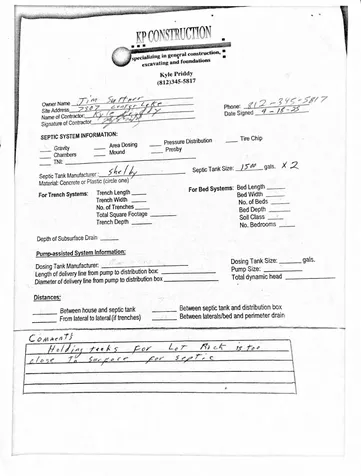 KP CONSTRUCTION
specializing in general construction,
excavating and foundations
Kyle Priddy
(812)345-5817
Owner Name Jim
Site Address 7307 Lake
Name of Contractor: Kyle
Signature of Contractor
Phone: 812-345-5817
Date Signed 9-18-25
SEPTIC SYSTEM INFORMATION:
Gravity Area Dosing Pressure Distribution Tire Chip
Chambers Mound Presby
TNI:
Septic Tank Manufacturer: Shelby Septic Tank Size: 1500 gals. X 2
Material: Concrete or Plastic (circle one)
For Trench Systems: Trench Length
Trench Width
No. of Trenches
Total Square Footage
Trench Depth
For Bed Systems: Bed Length
Bed Width
No. of Beds
Bed Depth
Soil Class
No. Bedrooms
Depth of Subsurface Drain
Pump-assisted System Information:
Dosing Tank Manufacturer:
Length of delivery line from pump to distribution box:
Diameter of delivery line from pump to distribution box
Dosing Tank Size: gals.
Pump Size:
Total dynamic head
Distances:
Between house and septic tank Between septic tank and distribution box
From lateral to lateral(if trenches) Between laterals/bed and perimeter drain
Comments
Holding tanks For Lot Rock is too
close To for septic